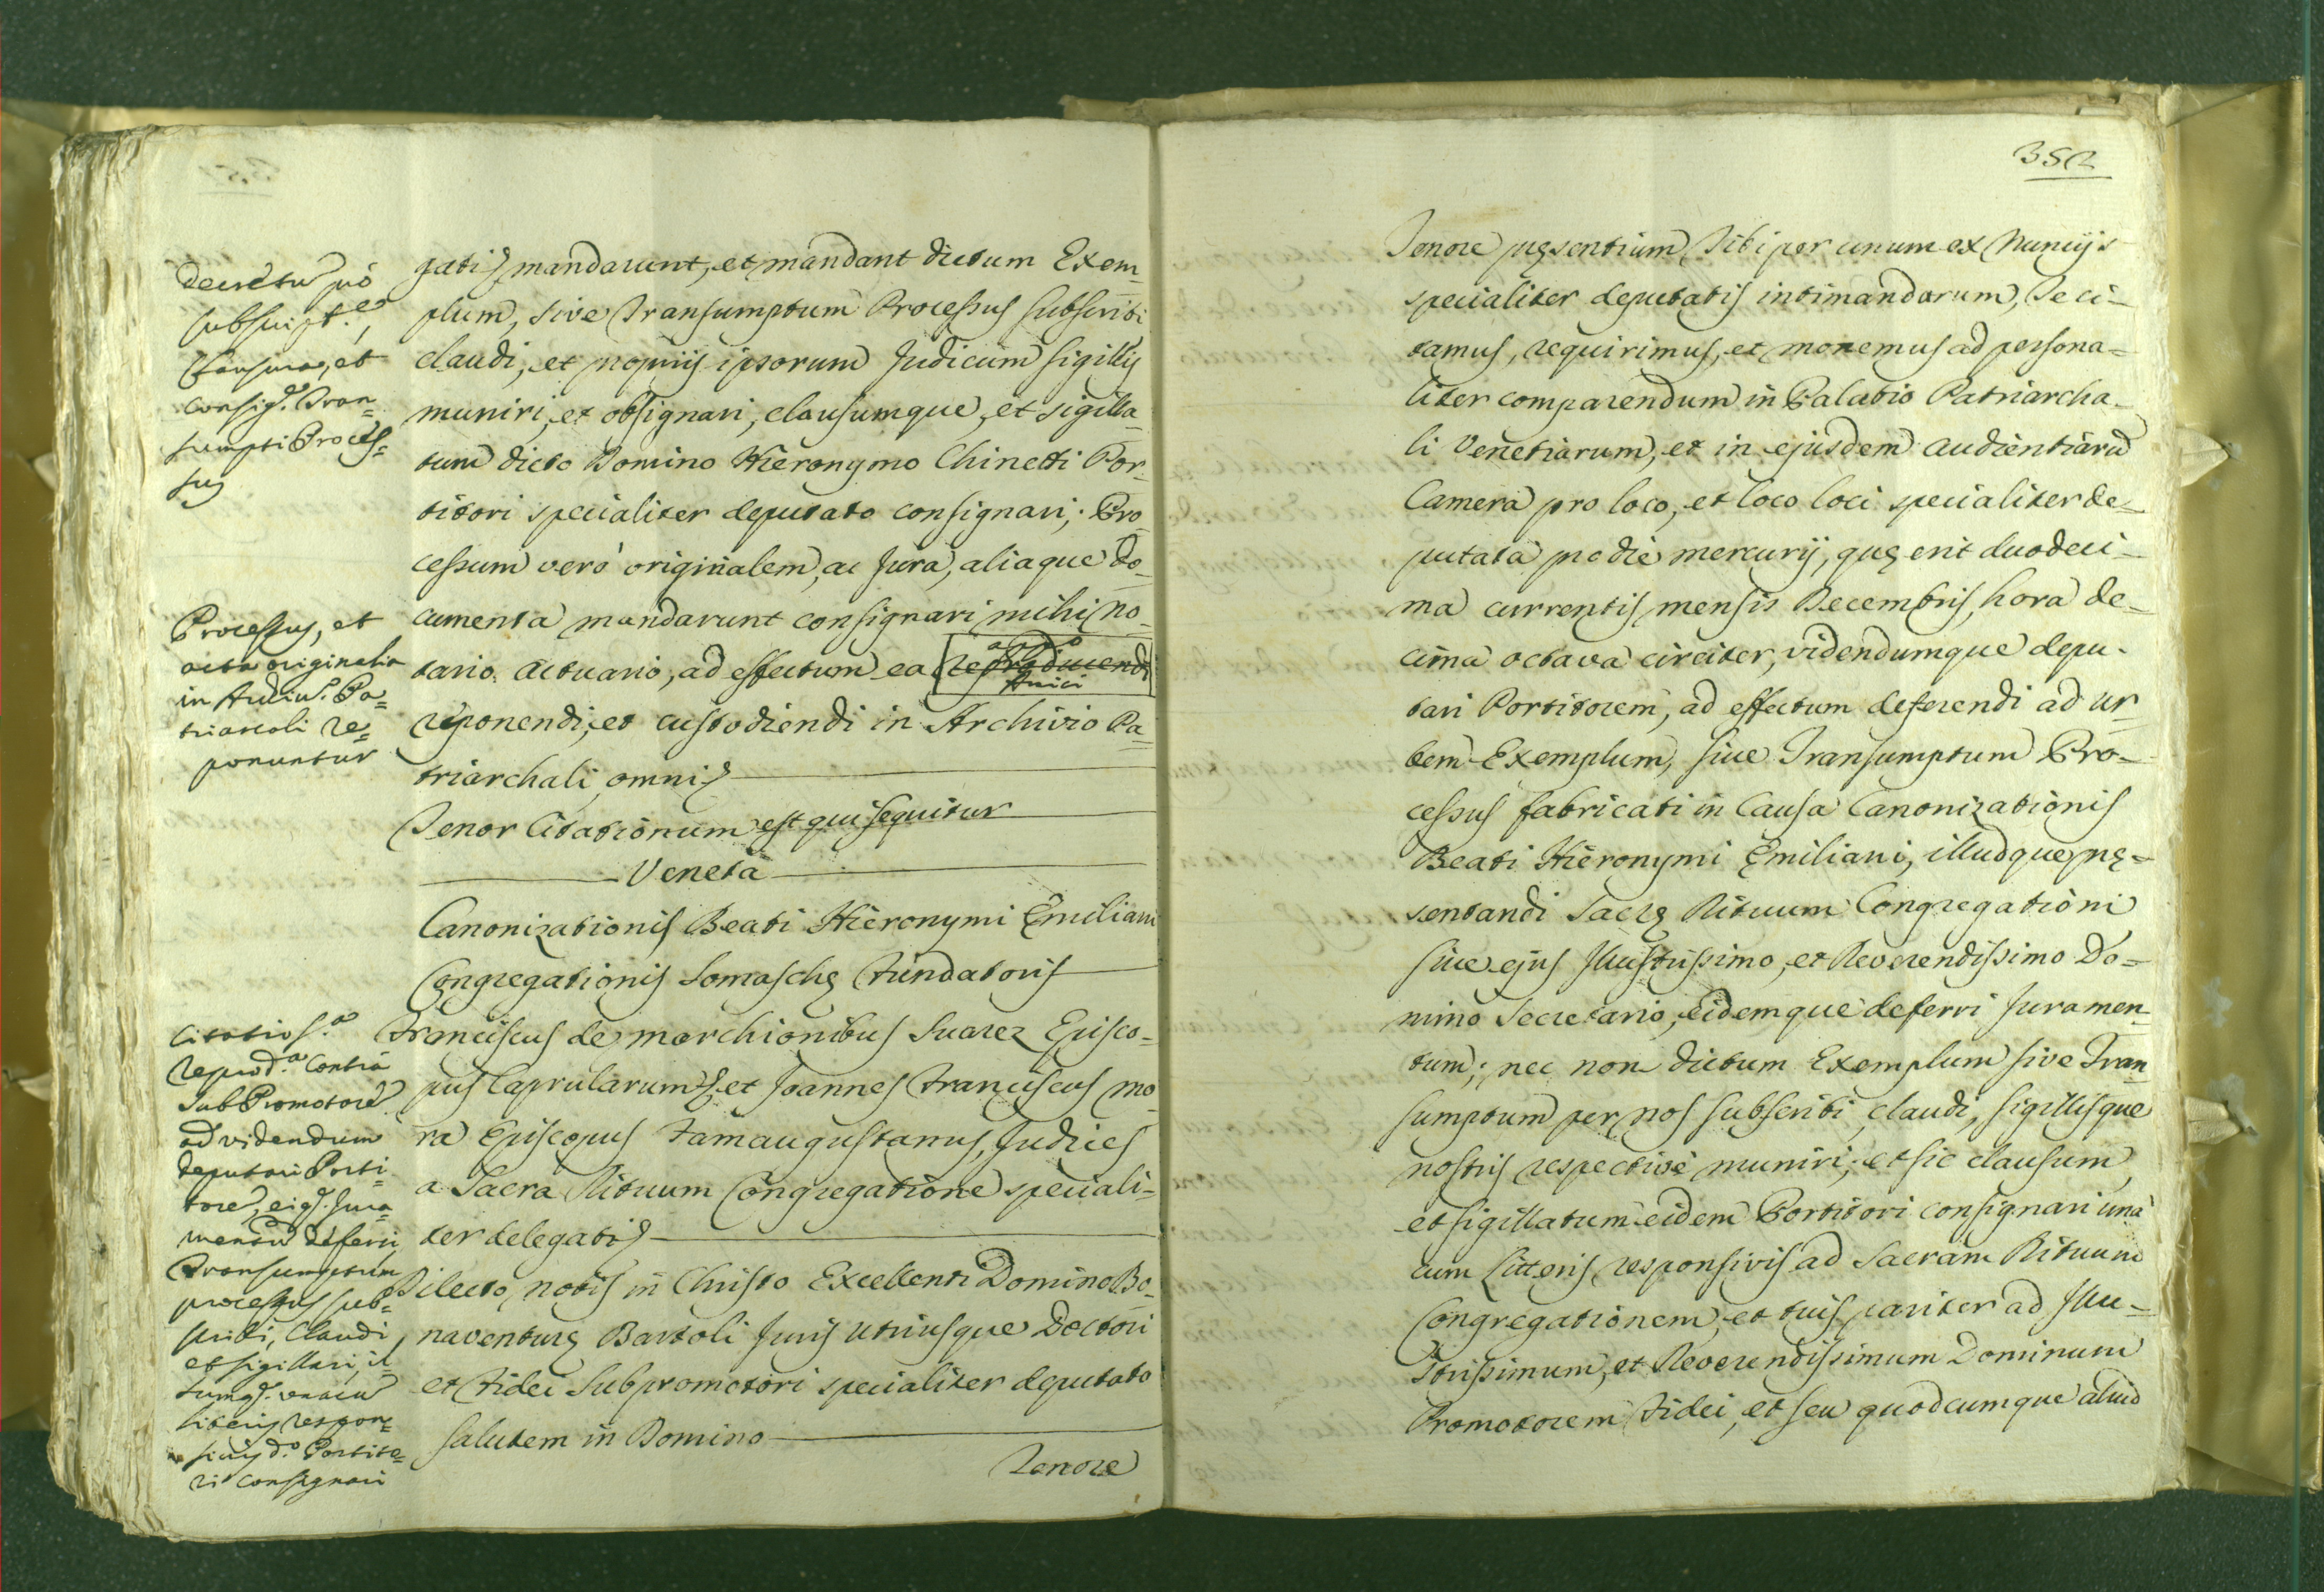 Decretũ pró
subscript.e,
Clausurae, et
consig.e Tran=
sumpti Proces=
sus
Processus, et
acta originalia
in Archiv.o Pa=
triarcali re=
ponuntur
Citatio s.a
reprod.a contra
SubPromotorẽ
ad videndum
deputari Porti=
torẽ, eiq. Jura=
mentũ deferri
Transumptum
processus sub=
scribi, claudi,
et sigillari, il=
lumq. unacũ
literis respon=
sivis d.o Portito=
ri consignari
gatis mandarunt, et mandant dictum Exem=
plum, sive Transumptum Processus subscribi
claudi, et proprijs ipsorum Judicum sigillis
muniri, et obsignari, clausumque, et sigilla=
tum dicto Domino Hieronymo Chinetti Por=
titori specialiter deputato consignari; Pro=
cessum verò originalem, ac Jura, aliaque do=
cumenta mandarunt consignari mihi no=
tario Actuario, ad effectum ea reproducendi
reponendi, et custodiendi in Archivio Pa=
triarchali, omni
Tenor Citationum est qui sequitur
Veneta
Canonizationis Beati Hieronymi Ęmiliani
Congregationis Somaschę Fundatoris
Franciscus de Marchionibus Suarez Episco=
pus Caprularum, et Joannes Franciscus Mo=
ra Episcopus Famaugustanus, Judices
a Sacra Rituum Congregatione speciali=
ter delegati
Dilecto nobis in Christo Excellenti Domino Bo=
naventurę Bartoli Juris utriusque Doctori
et Fidei Subpromotori specialiter deputato
salutem in Domino
Tenore
352
Tenore pręsentium Tibi per unum ex Nuncijs
specialiter deputatis intimandarum, Te ci=
tamus, requirimus, et monemus ad persona=
liter comparendum in Palatio Patriarcha=
li Venetiarum, et in ejusdem audientiarũ
Camera pro loco, et loco loci specialiter de=
putata pro die mercurij, quę erit duodeci=
ma currentis mensis Decembris, hora de=
cima octava circiter, videndumque depu=
tari Portitorem, ad effectum deferendi ad Ur=
bem Exemplum, sive Transumptum Pro=
cessus fabricati in Causa Canonizationis
Beati Hieronymi Ęmiliani, illudque prę=
sentandi Sacrę Rituum Congregationi
sive ejus Illustrissimo, et Reverendissimo Do=
mino Secretario, Eidemque deferri Juramen=
tum; nec non dictum Exemplum sive Tran=
sumptum per nos subscribi, claudi, sigillisque
nostris respectivè muniri, et sic clausum,
et sigillatum eidem Portitori consignari unà
cum Litteris responsivis ad Sacram Rituum
Congregationem, et tuis pariter ad Illu=
strissimum, et Reverendissimum Dominum
Promotorem Fidei, et seu quodcumque aliud